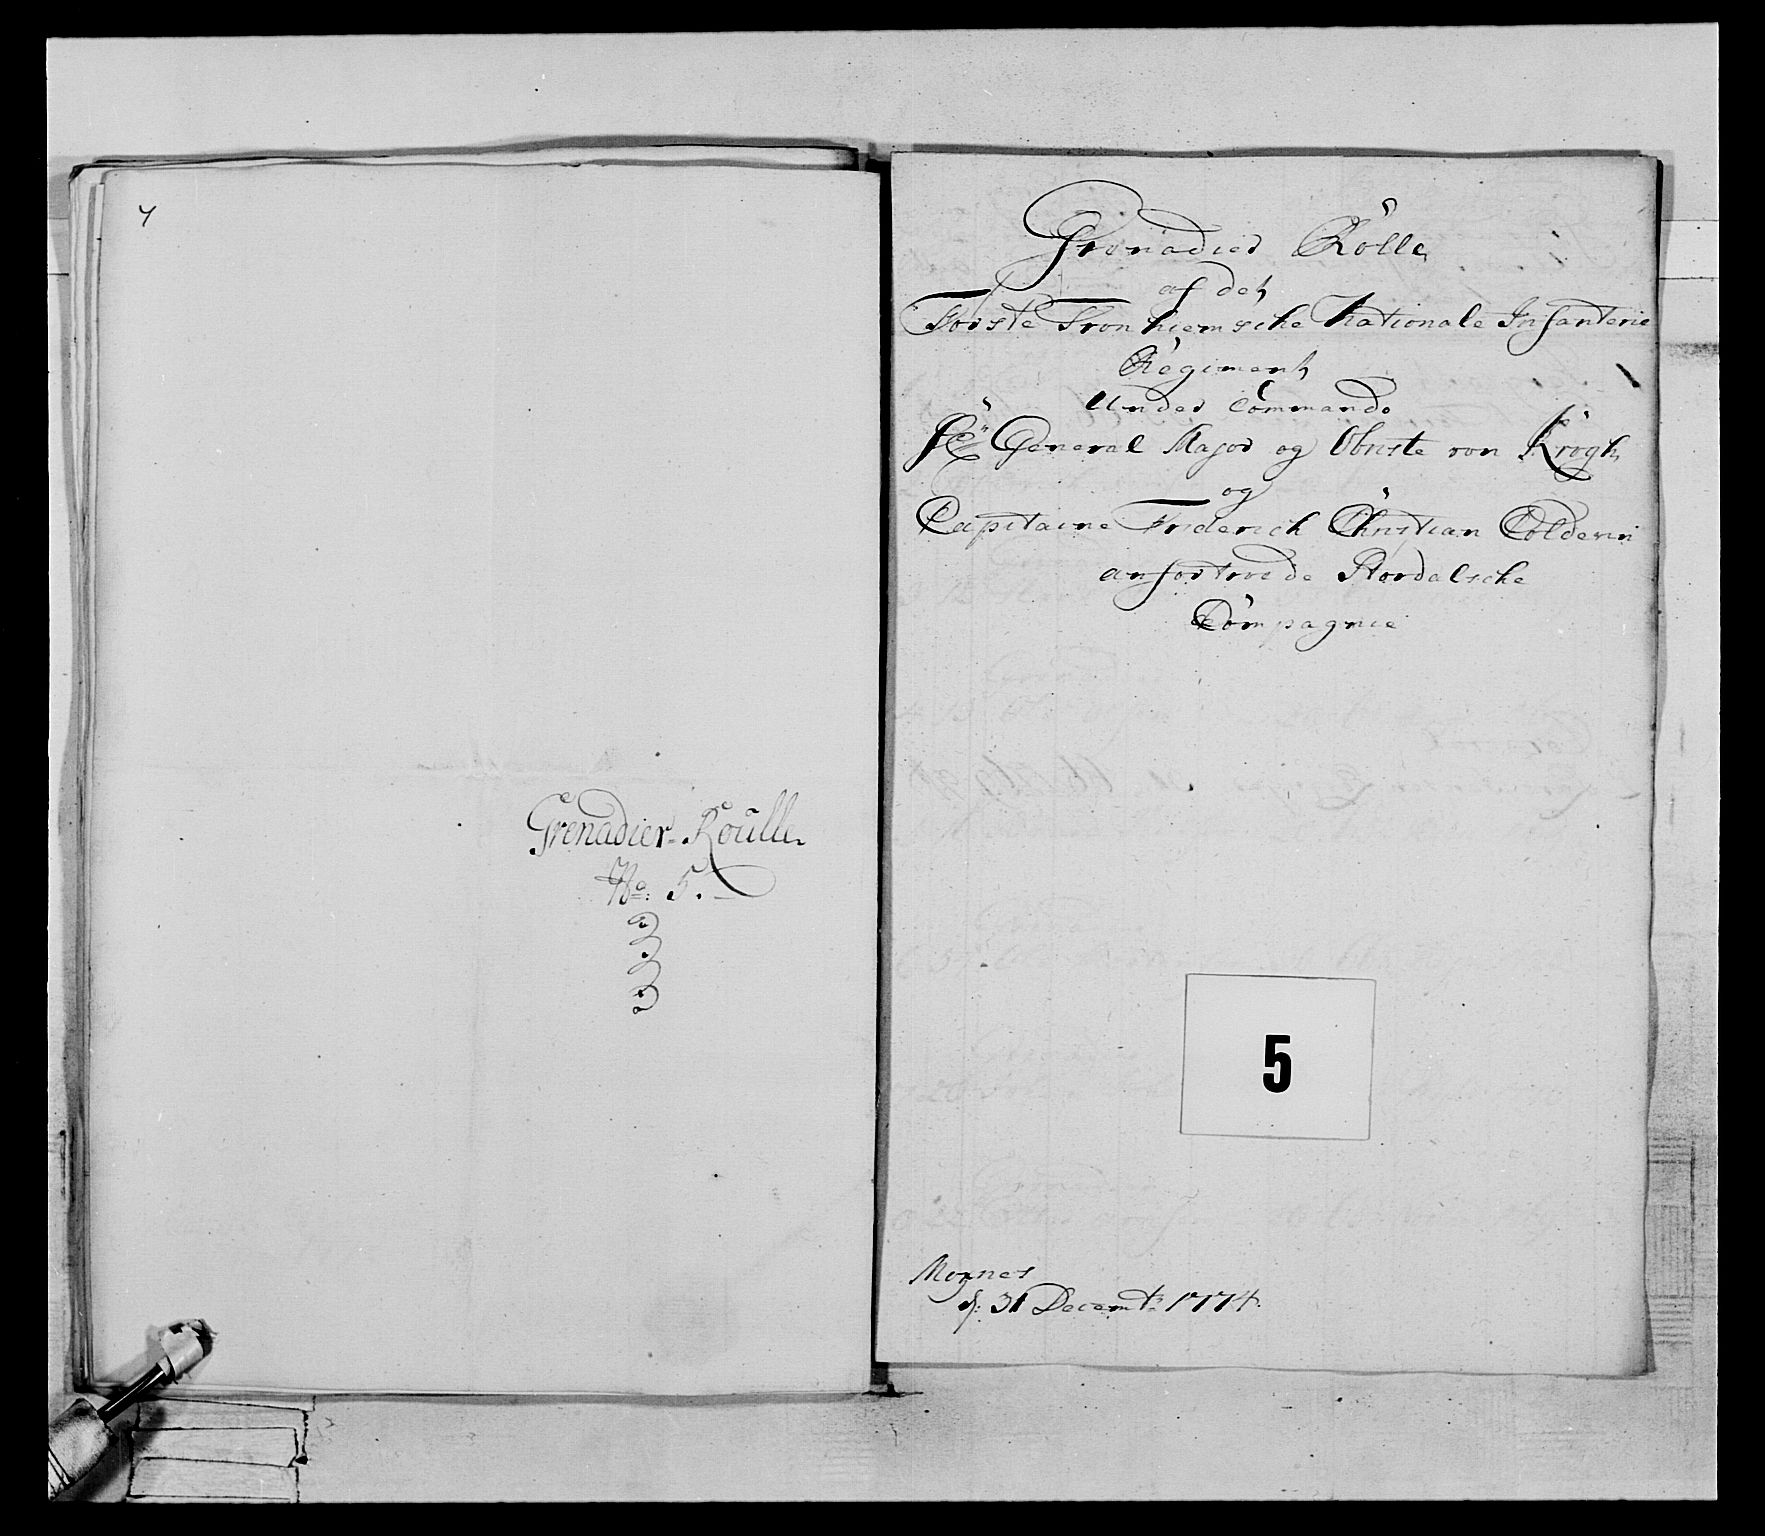 4
Grenadier-Roulle
No: 5.
Grenadier Rolle
af det
Første Tronhiemsche Nationale Infanterie
Regiment
Under Commando
Hr General Major og Obriste von Krogh
og
Capitaine Friderich Christian Colderin
anfortroede Størdalsche
Compagnie
5
Mognes
d: 31 Decembr 1774